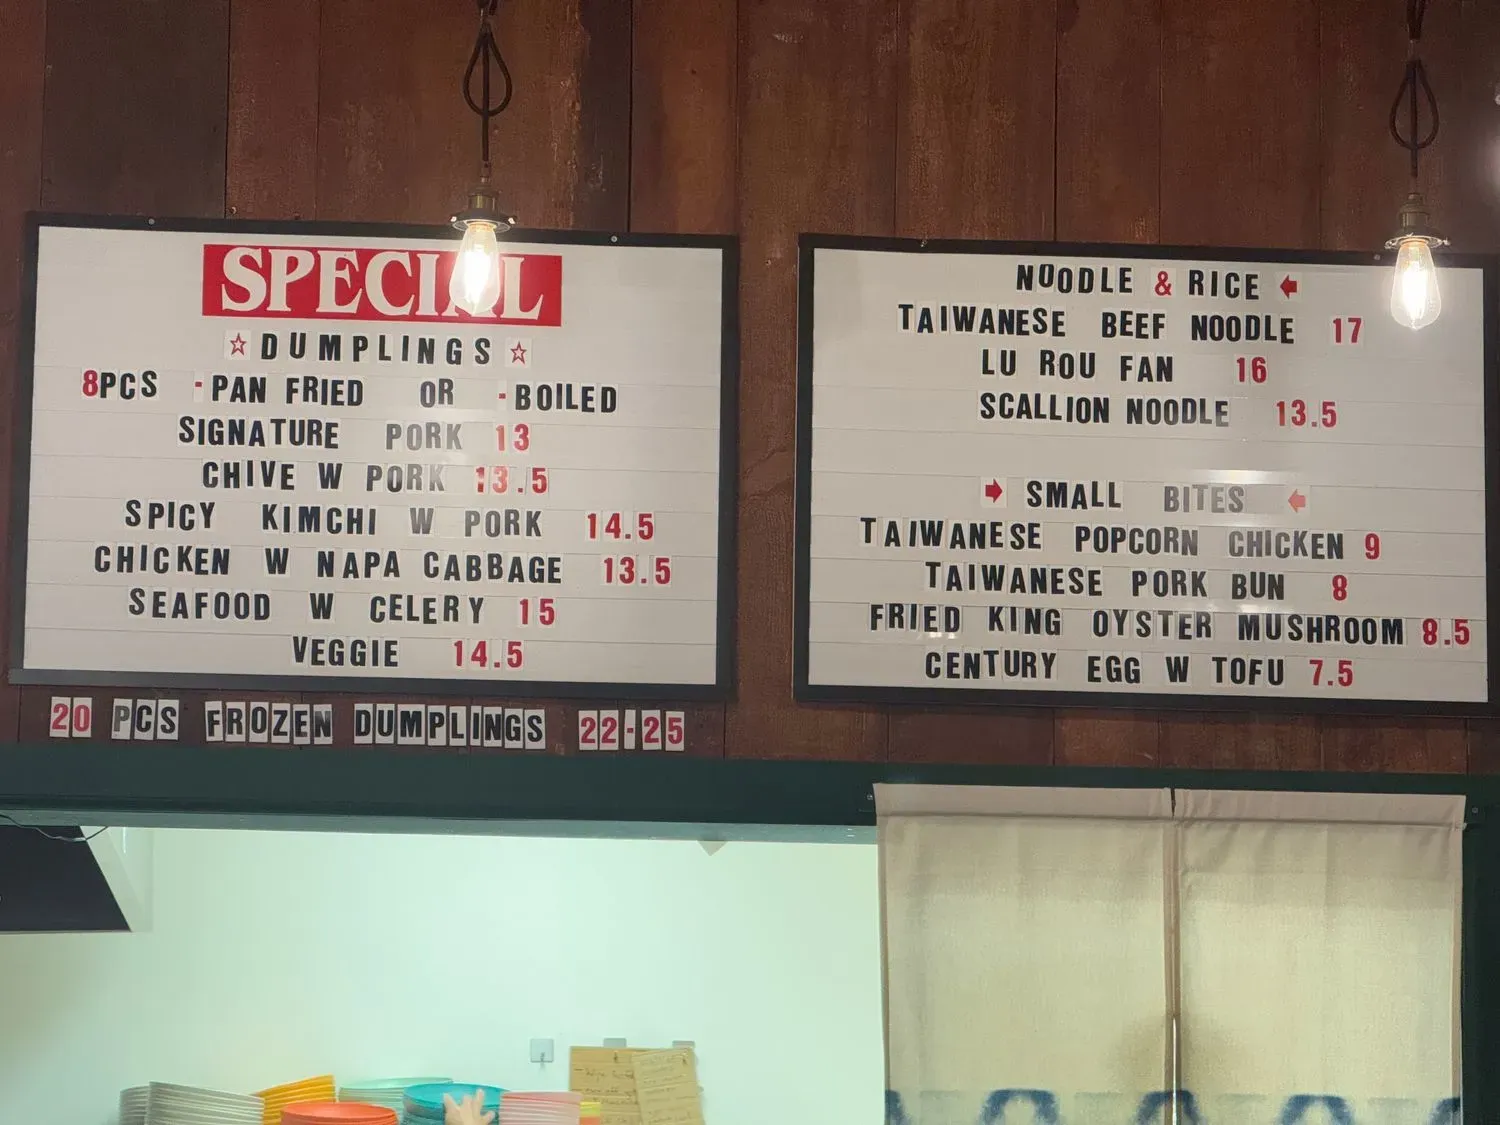 SPECIAL
☆ DUMPLINGS ☆
8PCS -PAN FRIED OR -BOILED
SIGNATURE PORK 13
CHIVE W PORK 13.5
SPICY KIMCHI W PORK 14.5
CHICKEN W NAPA CABBAGE 13.5
SEAFOOD W CELERY 15
VEGGIE 14.5
20 PCS FROZEN DUMPLINGS 22-25
NOODLE & RICE ←
TAIWANESE BEEF NOODLE 17
LU ROU FAN 16
SCALLION NOODLE 13.5
→ SMALL BITES ←
TAIWANESE POPCORN CHICKEN 9
TAIWANESE PORK BUN 8
FRIED KING OYSTER MUSHROOM 8.5
CENTURY EGG W TOFU 7.5